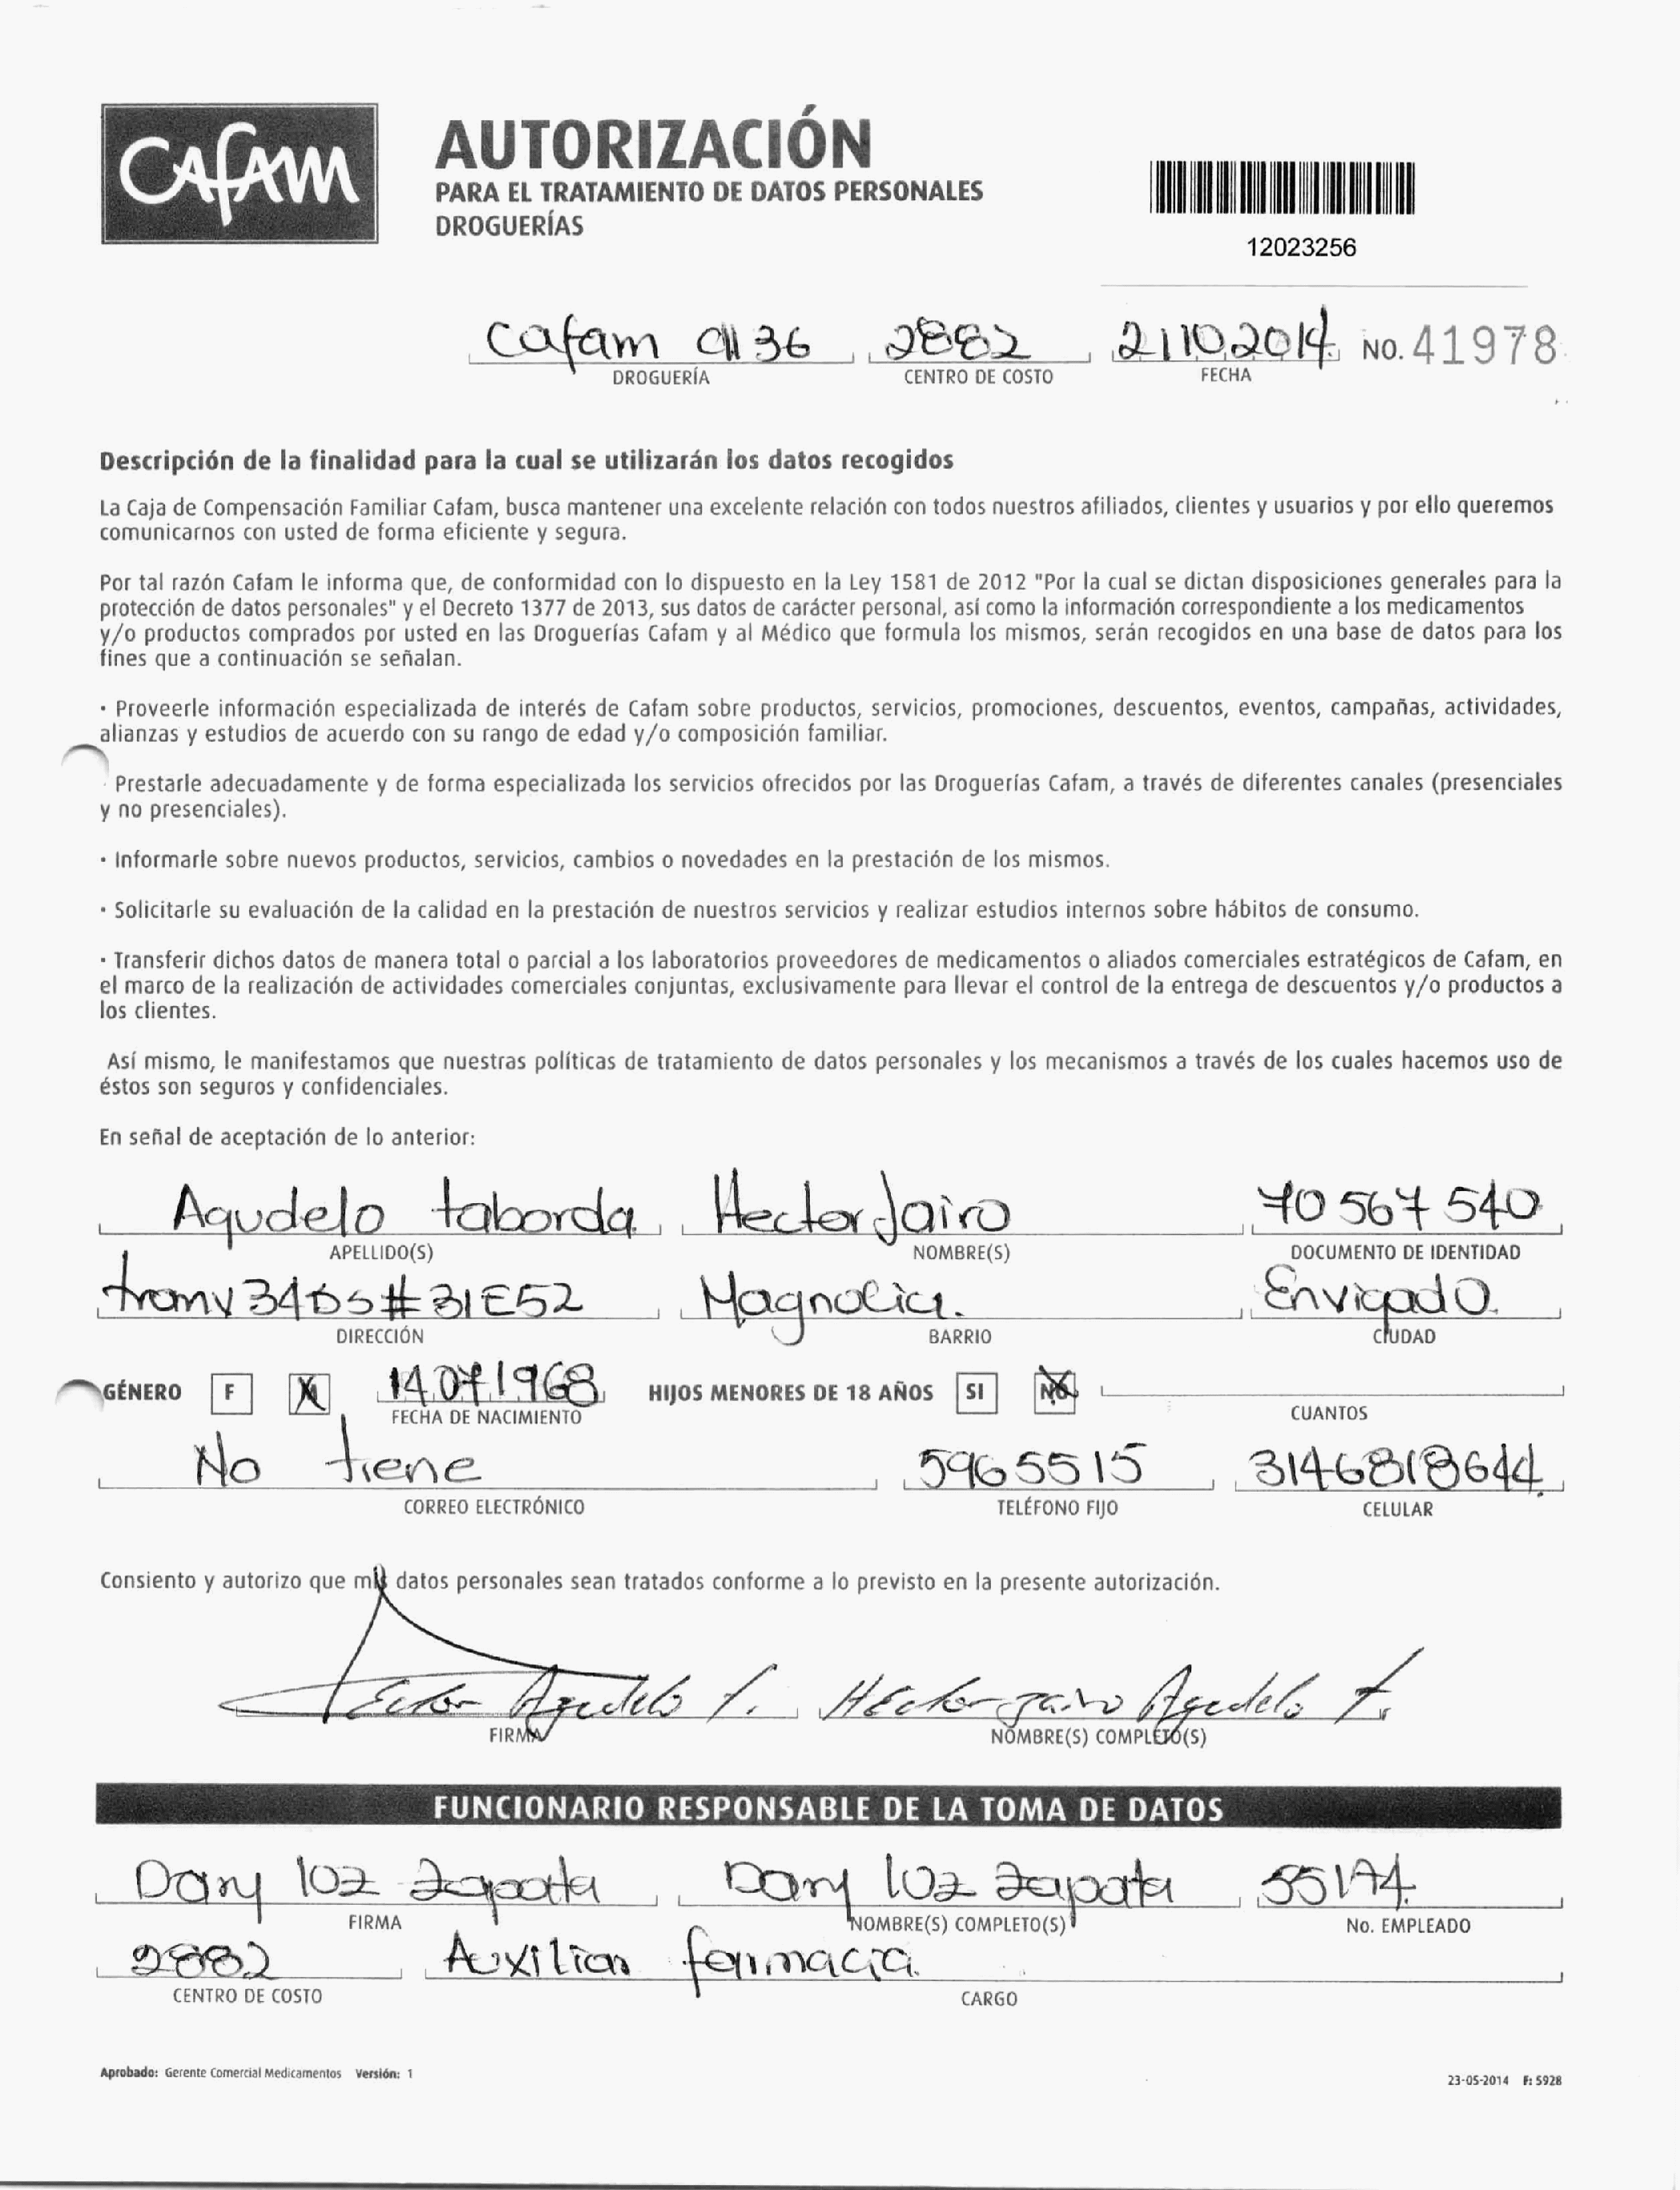 Cafam
AUTORIZACIÓN
PARA EL TRATAMIENTO DE DATOS PERSONALES
DROGUERÍAS
12023256
Cafam Cll 36 2882 21 10 2014 NO. 41978
DROGUERÍA CENTRO DE COSTO FECHA
Descripción de la finalidad para la cual se utilizarán los datos recogidos
La Caja de Compensación Familiar Cafam, busca mantener una excelente relación con todos nuestros afiliados, clientes y usuarios y por ello queremos
comunicarnos con usted de forma eficiente y segura.
Por tal razón Cafam le informa que, de conformidad con lo dispuesto en la Ley 1581 de 2012 "Por la cual se dictan disposiciones generales para la
protección de datos personales" y el Decreto 1377 de 2013, sus datos de carácter personal, así como la información correspondiente a los medicamentos
y/o productos comprados por usted en las Droguerías Cafam y al Médico que formula los mismos, serán recogidos en una base de datos para los
fines que a continuación se señalan.
· Proveerle información especializada de interés de Cafam sobre productos, servicios, promociones, descuentos, eventos, campañas, actividades,
alianzas y estudios de acuerdo con su rango de edad y/o composición familiar.
· Prestarle adecuadamente y de forma especializada los servicios ofrecidos por las Droguerías Cafam, a través de diferentes canales (presenciales
y no presenciales).
· Informarle sobre nuevos productos, servicios, cambios o novedades en la prestación de los mismos.
· Solicitarle su evaluación de la calidad en la prestación de nuestros servicios y realizar estudios internos sobre hábitos de consumo.
· Transferir dichos datos de manera total o parcial a los laboratorios proveedores de medicamentos o aliados comerciales estratégicos de Cafam, en
el marco de la realización de actividades comerciales conjuntas, exclusivamente para llevar el control de la entrega de descuentos y/o productos a
los clientes.
Así mismo, le manifestamos que nuestras políticas de tratamiento de datos personales y los mecanismos a través de los cuales hacemos uso de
éstos son seguros y confidenciales.
En señal de aceptación de lo anterior:
Agudelo taborda Hector Jairo 70 567 540
APELLIDO(S) NOMBRE(S) DOCUMENTO DE IDENTIDAD
tranv 34DS # 31E52 Magnolia. Envigado
DIRECCIÓN BARRIO CIUDAD
GÉNERO F M 14 07 1968 HIJOS MENORES DE 18 AÑOS SI NO
FECHA DE NACIMIENTO CUANTOS
No tiene 5965515 3146818644
CORREO ELECTRÓNICO TELÉFONO FIJO CELULAR
Consiento y autorizo que mis datos personales sean tratados conforme a lo previsto en la presente autorización.
Ector Agudelo t. Héctor jairo Agudelo t.
FIRMA NOMBRE(S) COMPLETO(S)
FUNCIONARIO RESPONSABLE DE LA TOMA DE DATOS
Dary luz Zapata Dary luz Zapata 55174
FIRMA NOMBRE(S) COMPLETO(S) No. EMPLEADO
2882 Auxiliar farmacia
CENTRO DE COSTO CARGO
Aprobado: Gerente Comercial Medicamentos Versión: 1
23-05-2014 F: 5928